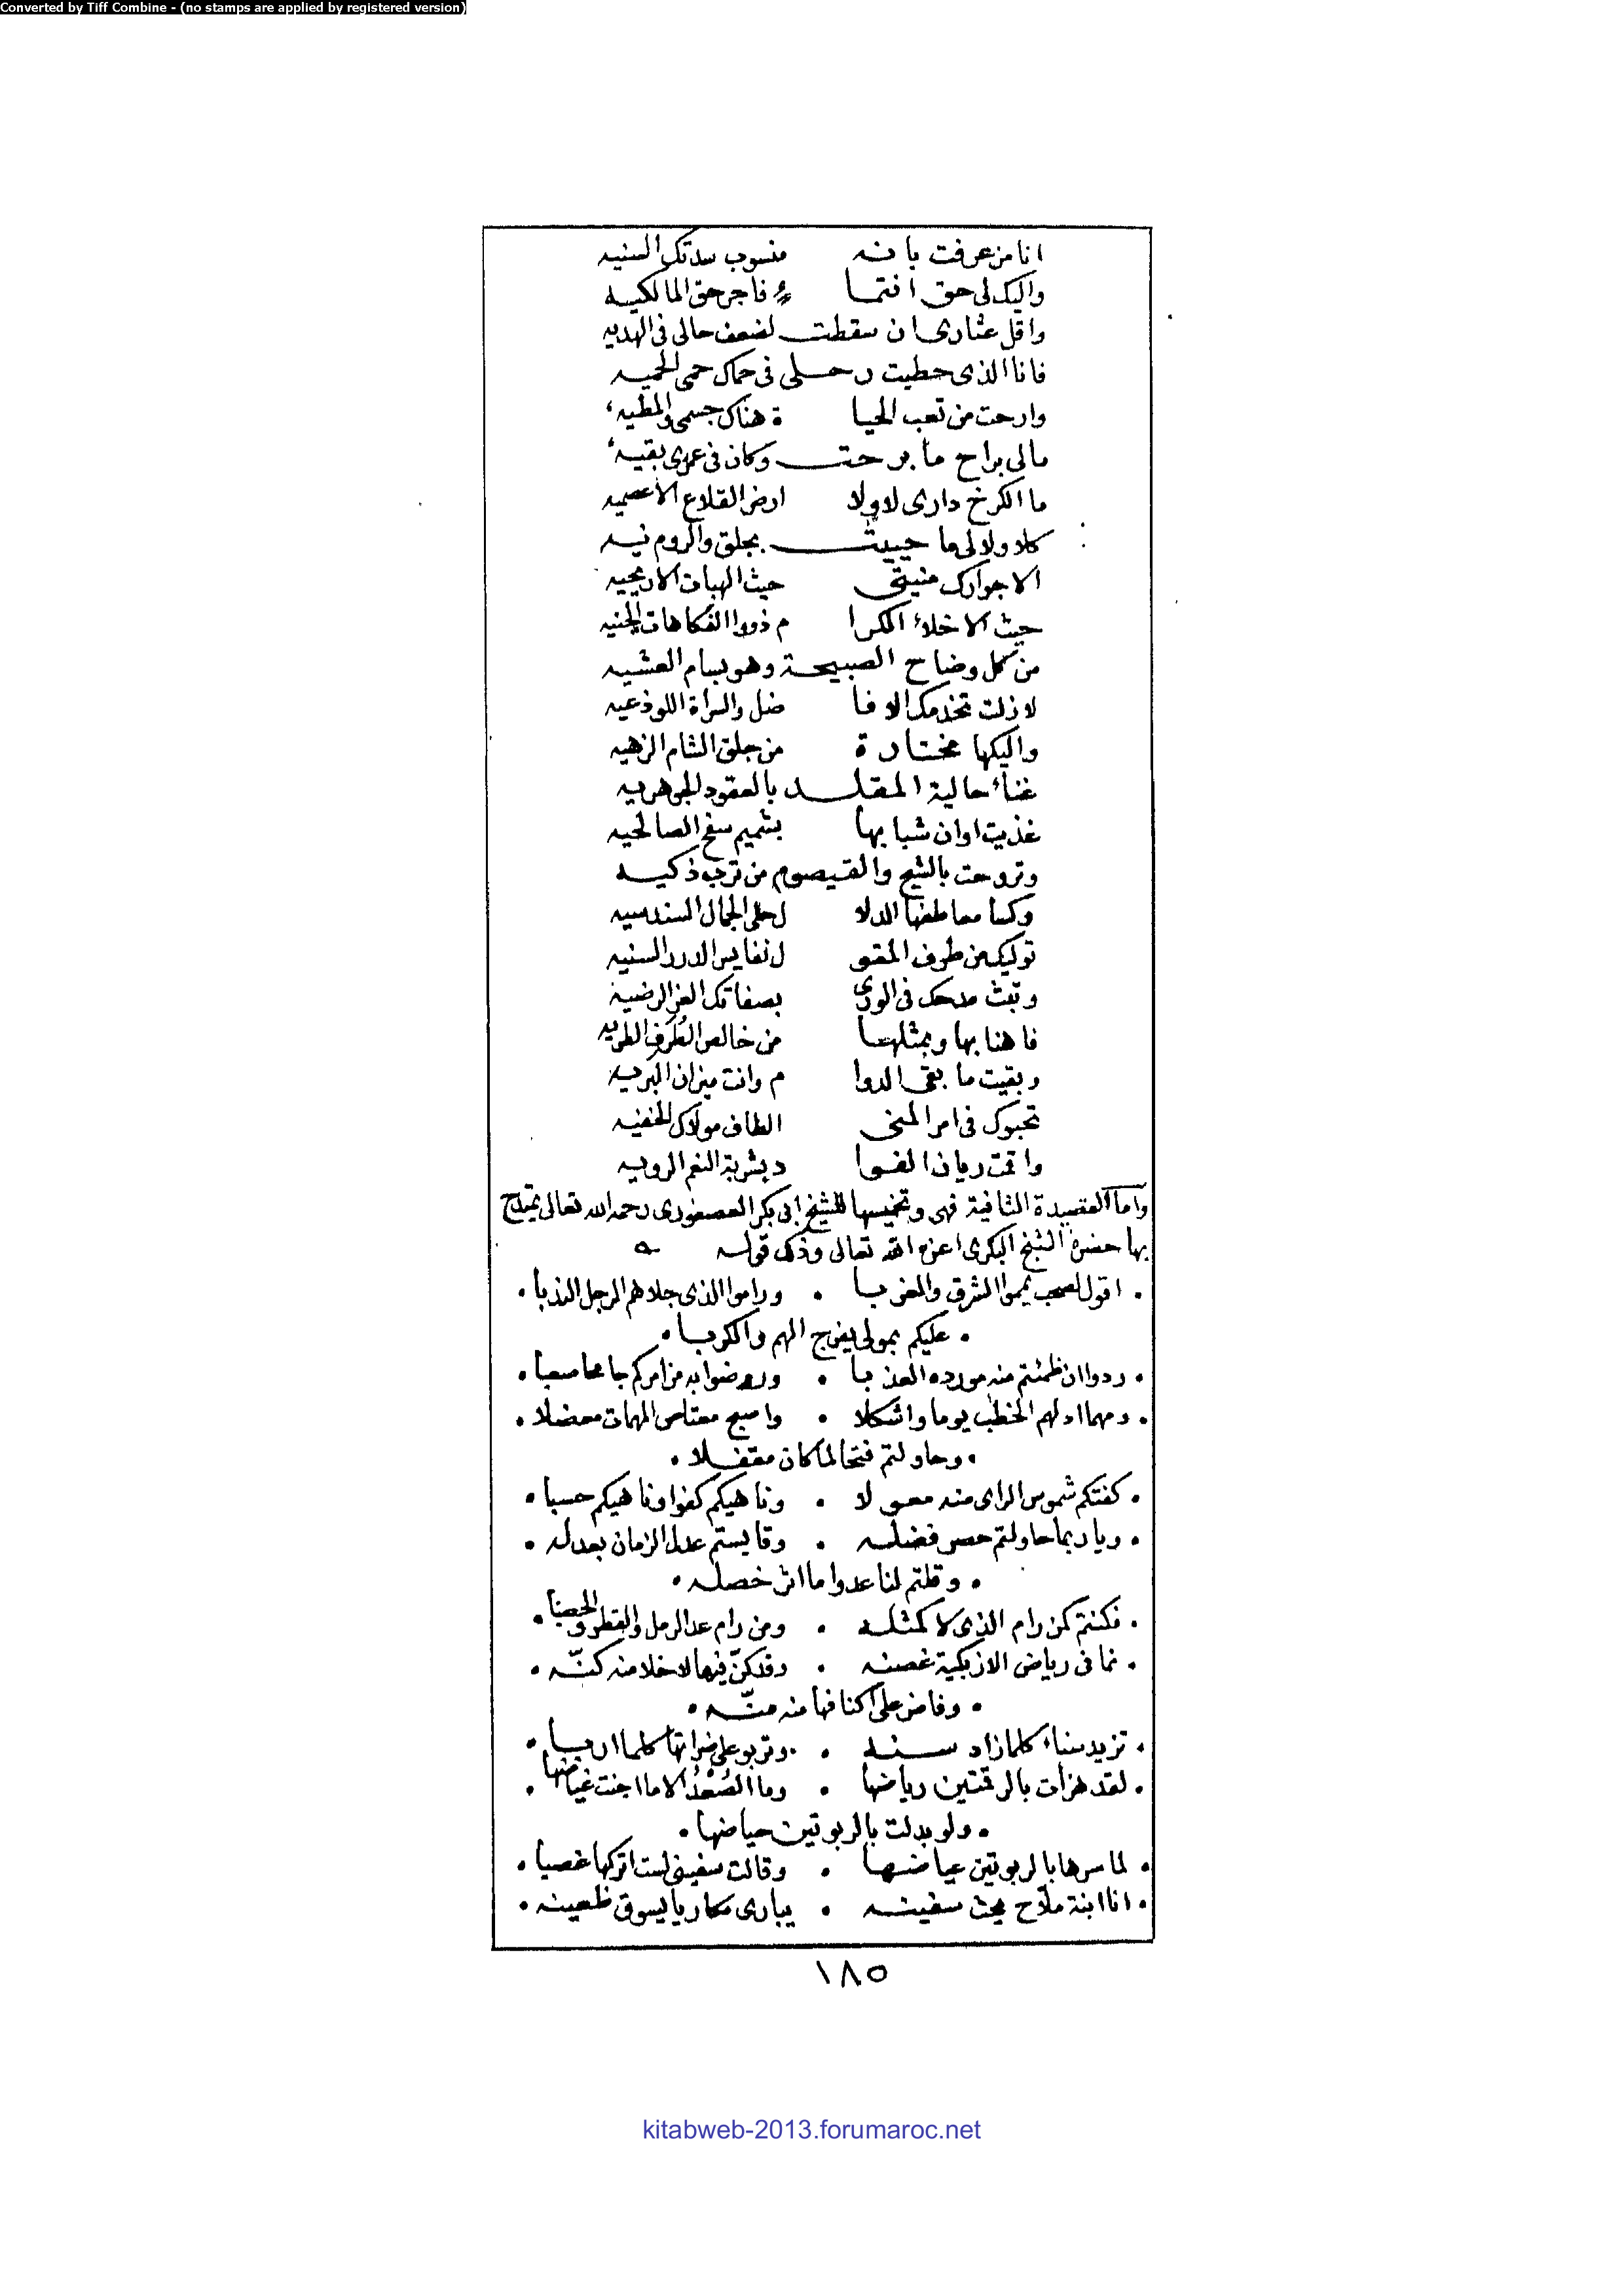 Converted by Tiff Combine - (no stamps are applied by registered version)
انا من عرفت بانه منسوب سدتك السنيه
واليك لى حق انتما ء فاجر حق المالكيه
واقل عثارى ان سقطت لضعف حالى فى الهديه
فانا الذى حطيت رحلى فى حماك حمى الحميه
وارحت من تعب الحيا ة هناك جسمى والمطيه
مالى براح ما برحت وكان فى عمرى بقيه
ما الكرخ دارى لا ولا ارض القلاع الاعصميه
كلا ولا لى ما حييت بجلق والروم نيه
الا جوارك منيتى حيث الهبات الاريحيه
حيث الاخلاء الكرا م ذووا الفكاهات الجنيه
من كل وضاح الصبيحة وهو بسام العشيه
لا زلت تخدمك الافا ضل والسراة اللوذعيه
واليكها مختارة من جلق الشام الزهيه
غناء حالية المقلد بالعقود الجوهريه
غذيت اوان شبابها بشميم سفح الصالحيه
وتروحت بالشيح والقيصوم من ترب ذكيه
وكسا معاطفها الدلا ل حلى الجمال السندسيه
توليك من طرف المقو ل نفايس الدرر السنيه
وتبث مدحك فى الورى بصفاتك الغر الرضية
فاهنا بها وبمثلها من خالص الطرف الطريه
وبقيت ما بقى الدوا م وانت ميزان البريه
تحبوك فى امر المنى الطاف مولاك الخفيه
واقمت ريان الفوا د بشربة النعم الرويه
واما القصيدة الثانية فهى وتخميسها للشيخ ابى بكر العصفورى رحمه الله تعالى يمتدح
بها حضرة الشيخ البكرى اعزه الله تعالى وذلك قوله
اقول لصحب يمموا الشرق والغربا • وراموا الذى جلاهم الرجل الندبا
عليكم بمولى يفرج الهم والكربا
ردوا ان ظمئتم منه مورده العذبا • وروضوا به من امركم جامحا صعبا
ومهما ادلهم الخطب يوما واشكلا • واصبح معتاص المهمات معضلا
وحاولتم فتحا لما كان مقفلا
كفتكم شموس الراى منه معولا • وناهيكم كفوا وناهيكم حسبا
ويا ربما حاولتم حصر فضله • وقايستم عدل الزمان بعدله
وقلتم لنا عدوا ماثر خصله
فكنتم كمن رام الذى لا كمثله • ومن رام عد الرمل والقطر والحصبا
نما فى رياض الازبكية غصنه • وقد كنّ فيها لا خلا منه كنّه
وفاض على اكنافها منه منّه
تزيد سناء كلما زاد سنه • وتربو على ضراتها كلما اربا
لقد هزأت بالرقمتين رياضها • وما الصُغْدُ الا ما اجنت غياضها
ولو بدلت بالربوتين حياضها
لما سرها بالربوتين عياضها • وقالت سفينى لست اتركها غصبا
انا ابنة ملاّح يحث سفينه • يبارى مكاريا يسوق ظعينه
١٨٥
kitabweb-2013.forumaroc.net